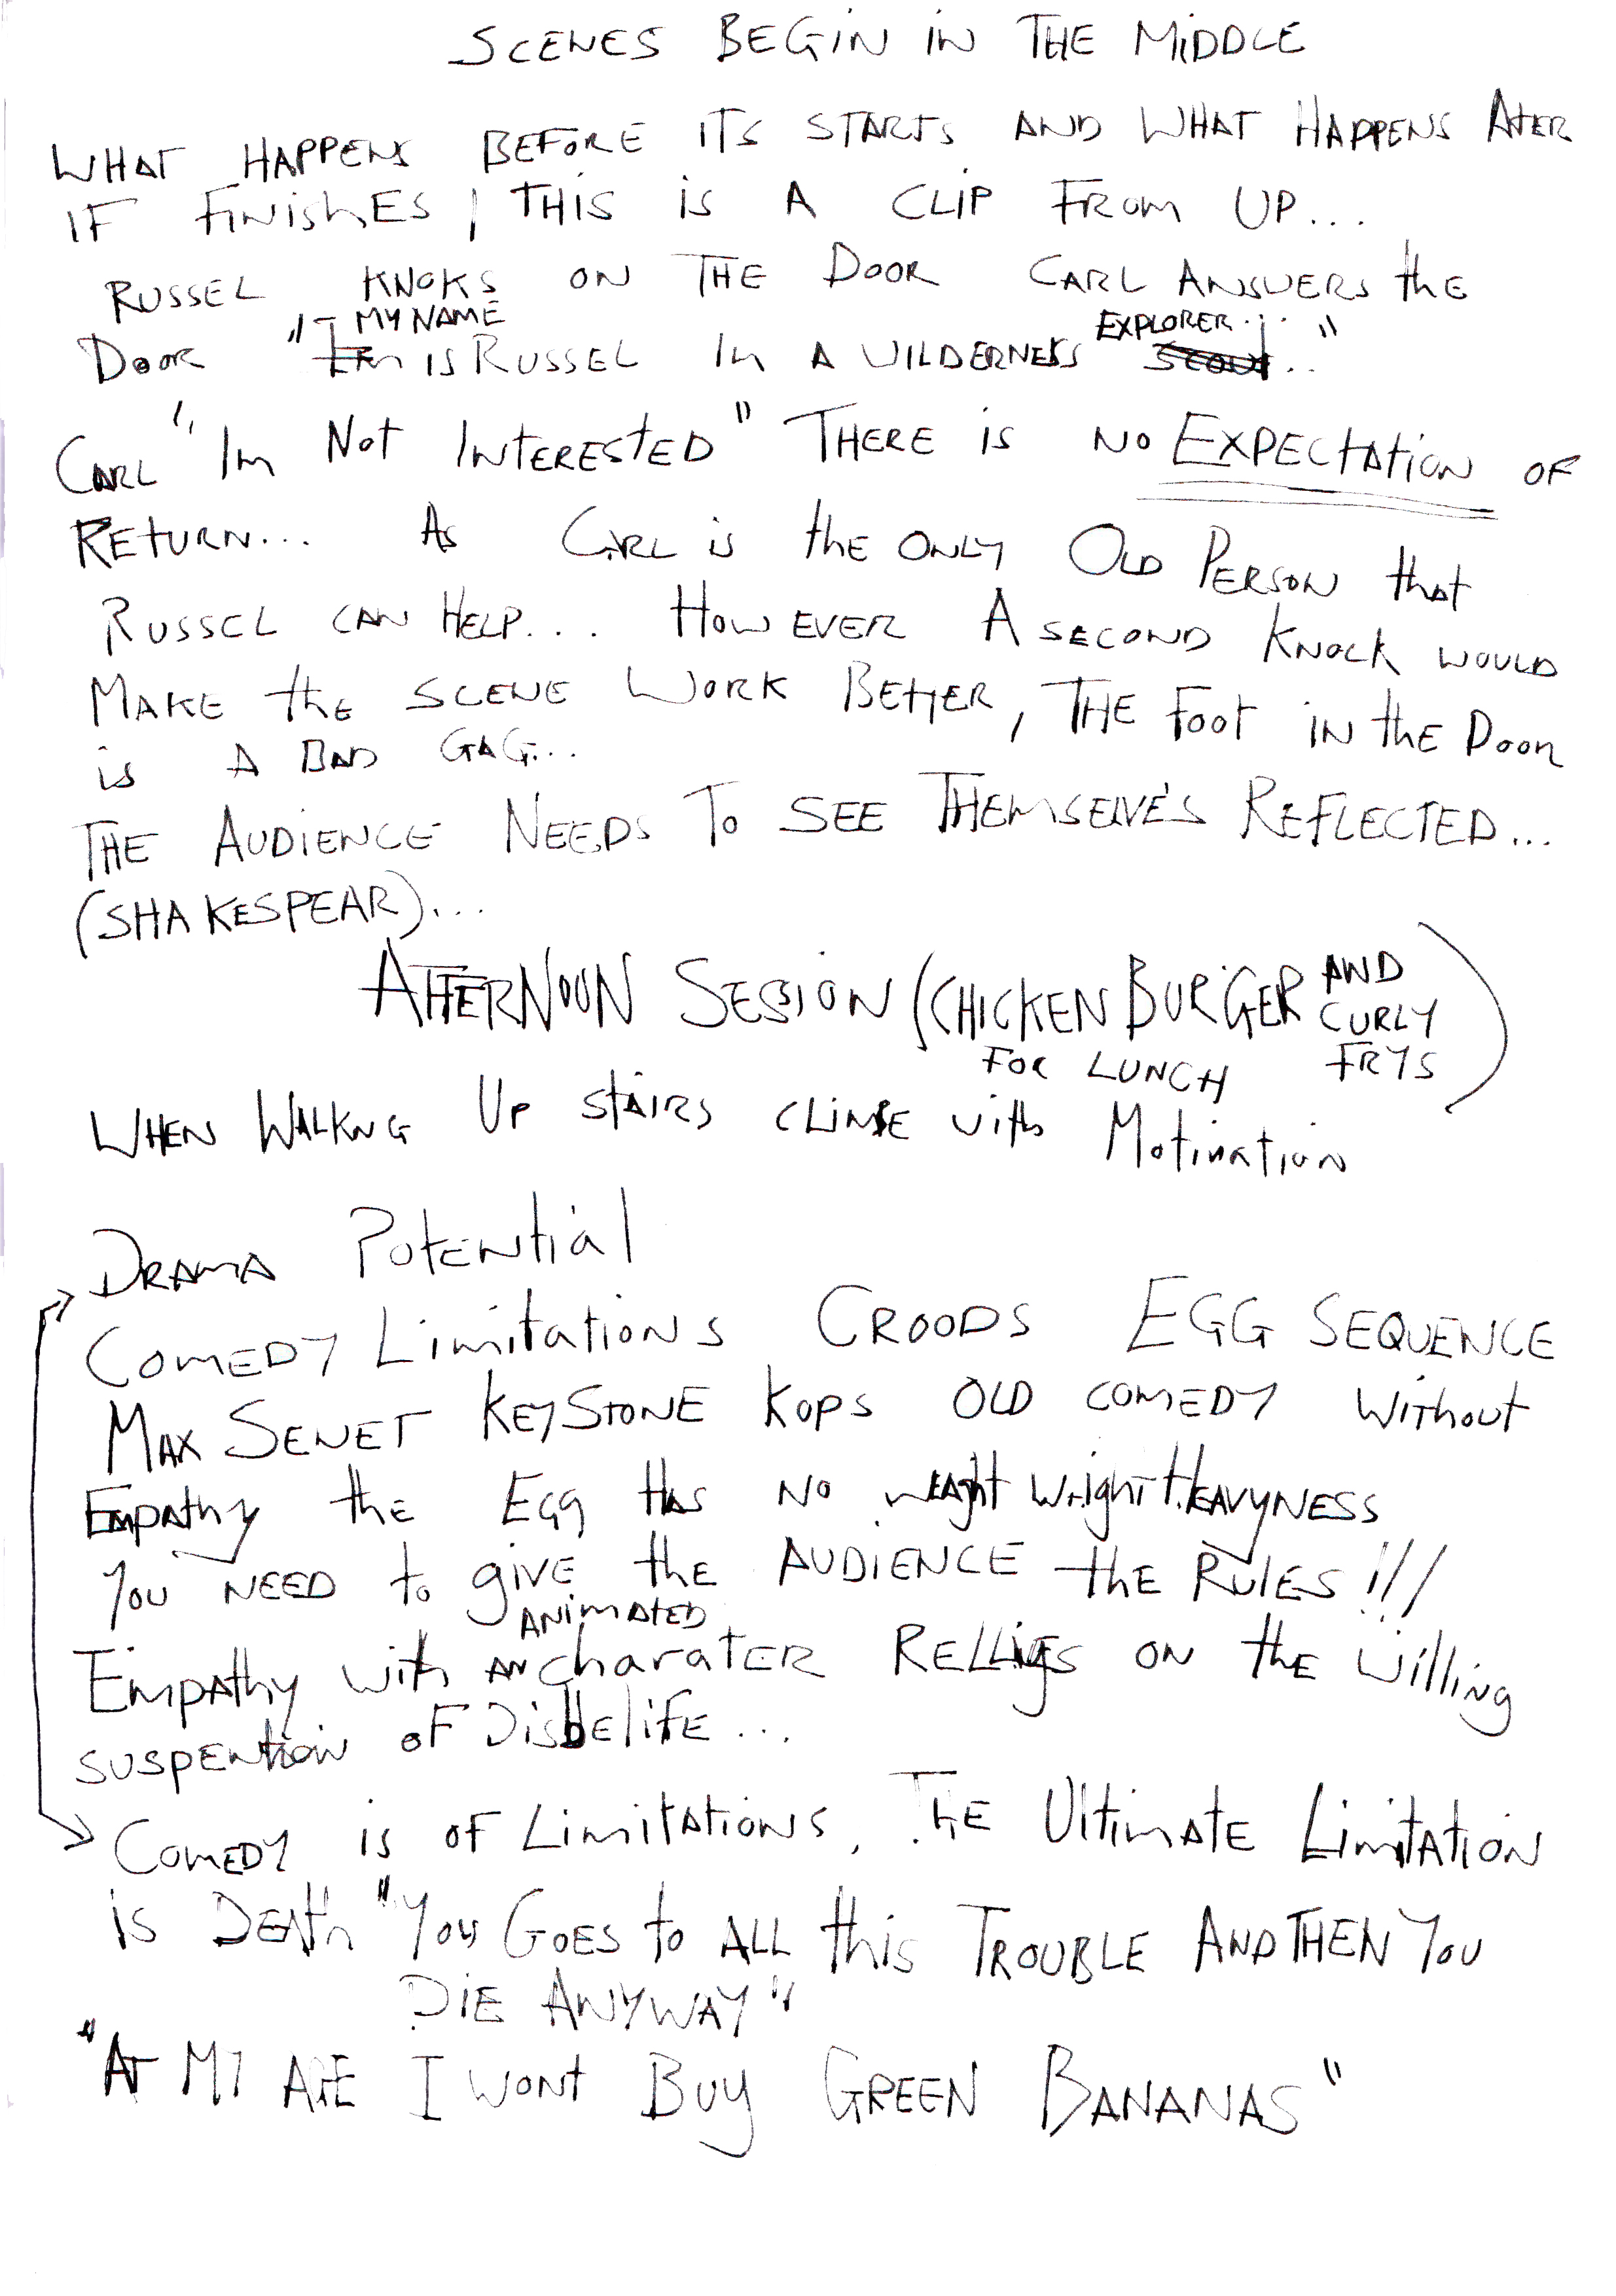 SCENES BEGIN IN THE MIDDLE
WHAT HAPPENS BEFORE ITS STARTS AND WHAT HAPPENS ATER
IF FINISHES, THIS IS A CLIP FROM UP...
RUSSEL KNOKS ON THE DOOR CARL ANSWERS THE
DOOR "MY NAME IS RUSSEL IM A WILDERNESS EXPLORER..."
CARL "IM NOT INTERESTED" THERE IS NO EXPECTATION OF
RETURN... AS CARL IS THE ONLY OLD PERSON THAT
RUSSEL CAN HELP.... HOWEVER A SECOND KNOCK WOULD
MAKE THE SCENE WORK BETTER, THE FOOT IN THE DOOR
IS A BAD GAG...
THE AUDIENCE NEEDS TO SEE THEMSELVE'S REFLECTED...
(SHAKESPEAR)...
AFTERNOUN SESSION (CHICKEN BURGER AND CURLY FRYS
FOR LUNCH)
WHEN WALKNG UP STAIRS CLIMBE WITH MOTIVATION
DRAMA POTENTIAL
COMEDY LIMITATIONS CROODS EGG SEQUENCE
MAX SENET KEYSTONE KOPS OLD COMEDY WITHOUT
EMPATHY THE EGG HAS NO WRIGHT HEAVYNESS
YOU NEED TO GIVE THE AUDIENCE THE RULES!!!
EMPATHY WITH AN ANIMATED CHARATER RELLIES ON THE WILLING
SUSPENTION OF DISBELIFE...
COMEDY IS OF LIMITATIONS, THE ULTIMATE LIMITATION
IS DEATH "YOU GOES TO ALL THIS TROUBLE AND THEN YOU
DIE ANYWAY"
"AT MY AGE I WONT BUY GREEN BANANAS"